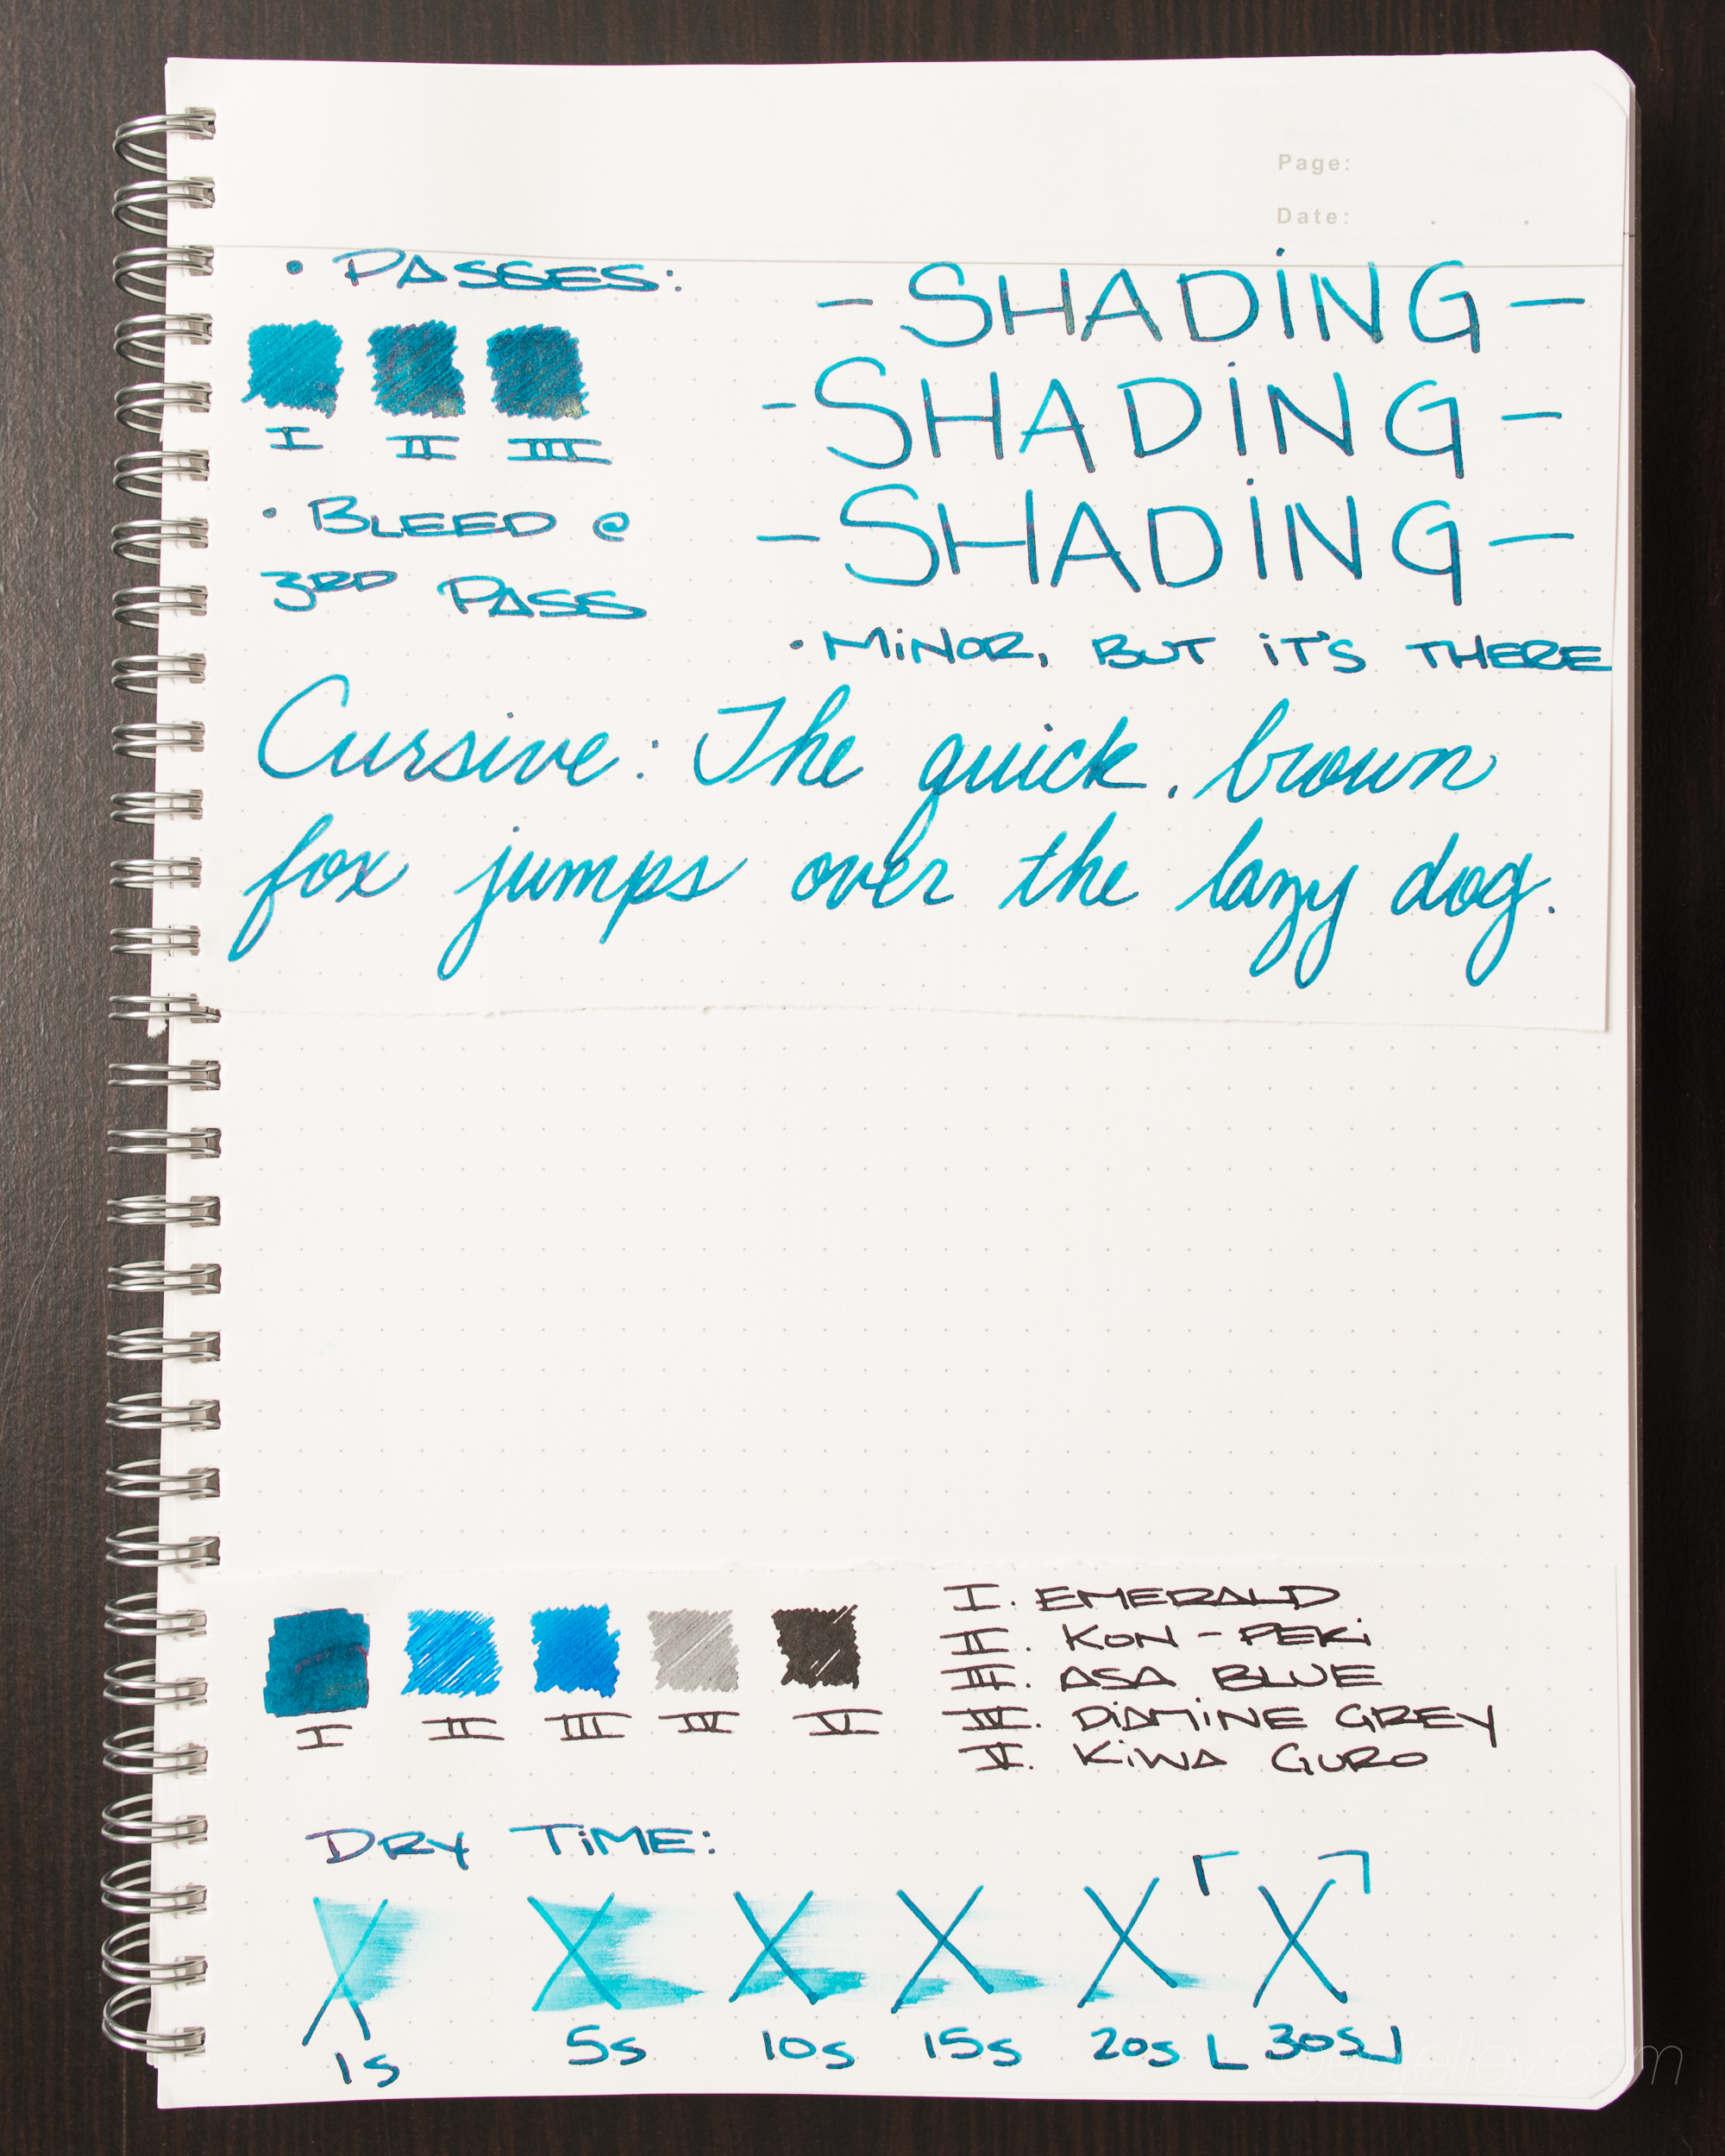 Page:
Date: . .
• PASSES:
I II III
• BLEED @
3RD PASS
- SHADiNG -
- SHADiNG -
- SHADiNG -
• MiNOR, BUT iT'S THERE
Cursive: The quick, brown
fox jumps over the lazy dog.
I II III IV V
I. EMERALD
II. KON-PEKi
III. ASA BLUE
IV. DiAMiNE GREY
V. KiWA GURO
DRY TiME:
X X X X X X
1s 5s 10s 15s 20s 30s
©edjelley.com